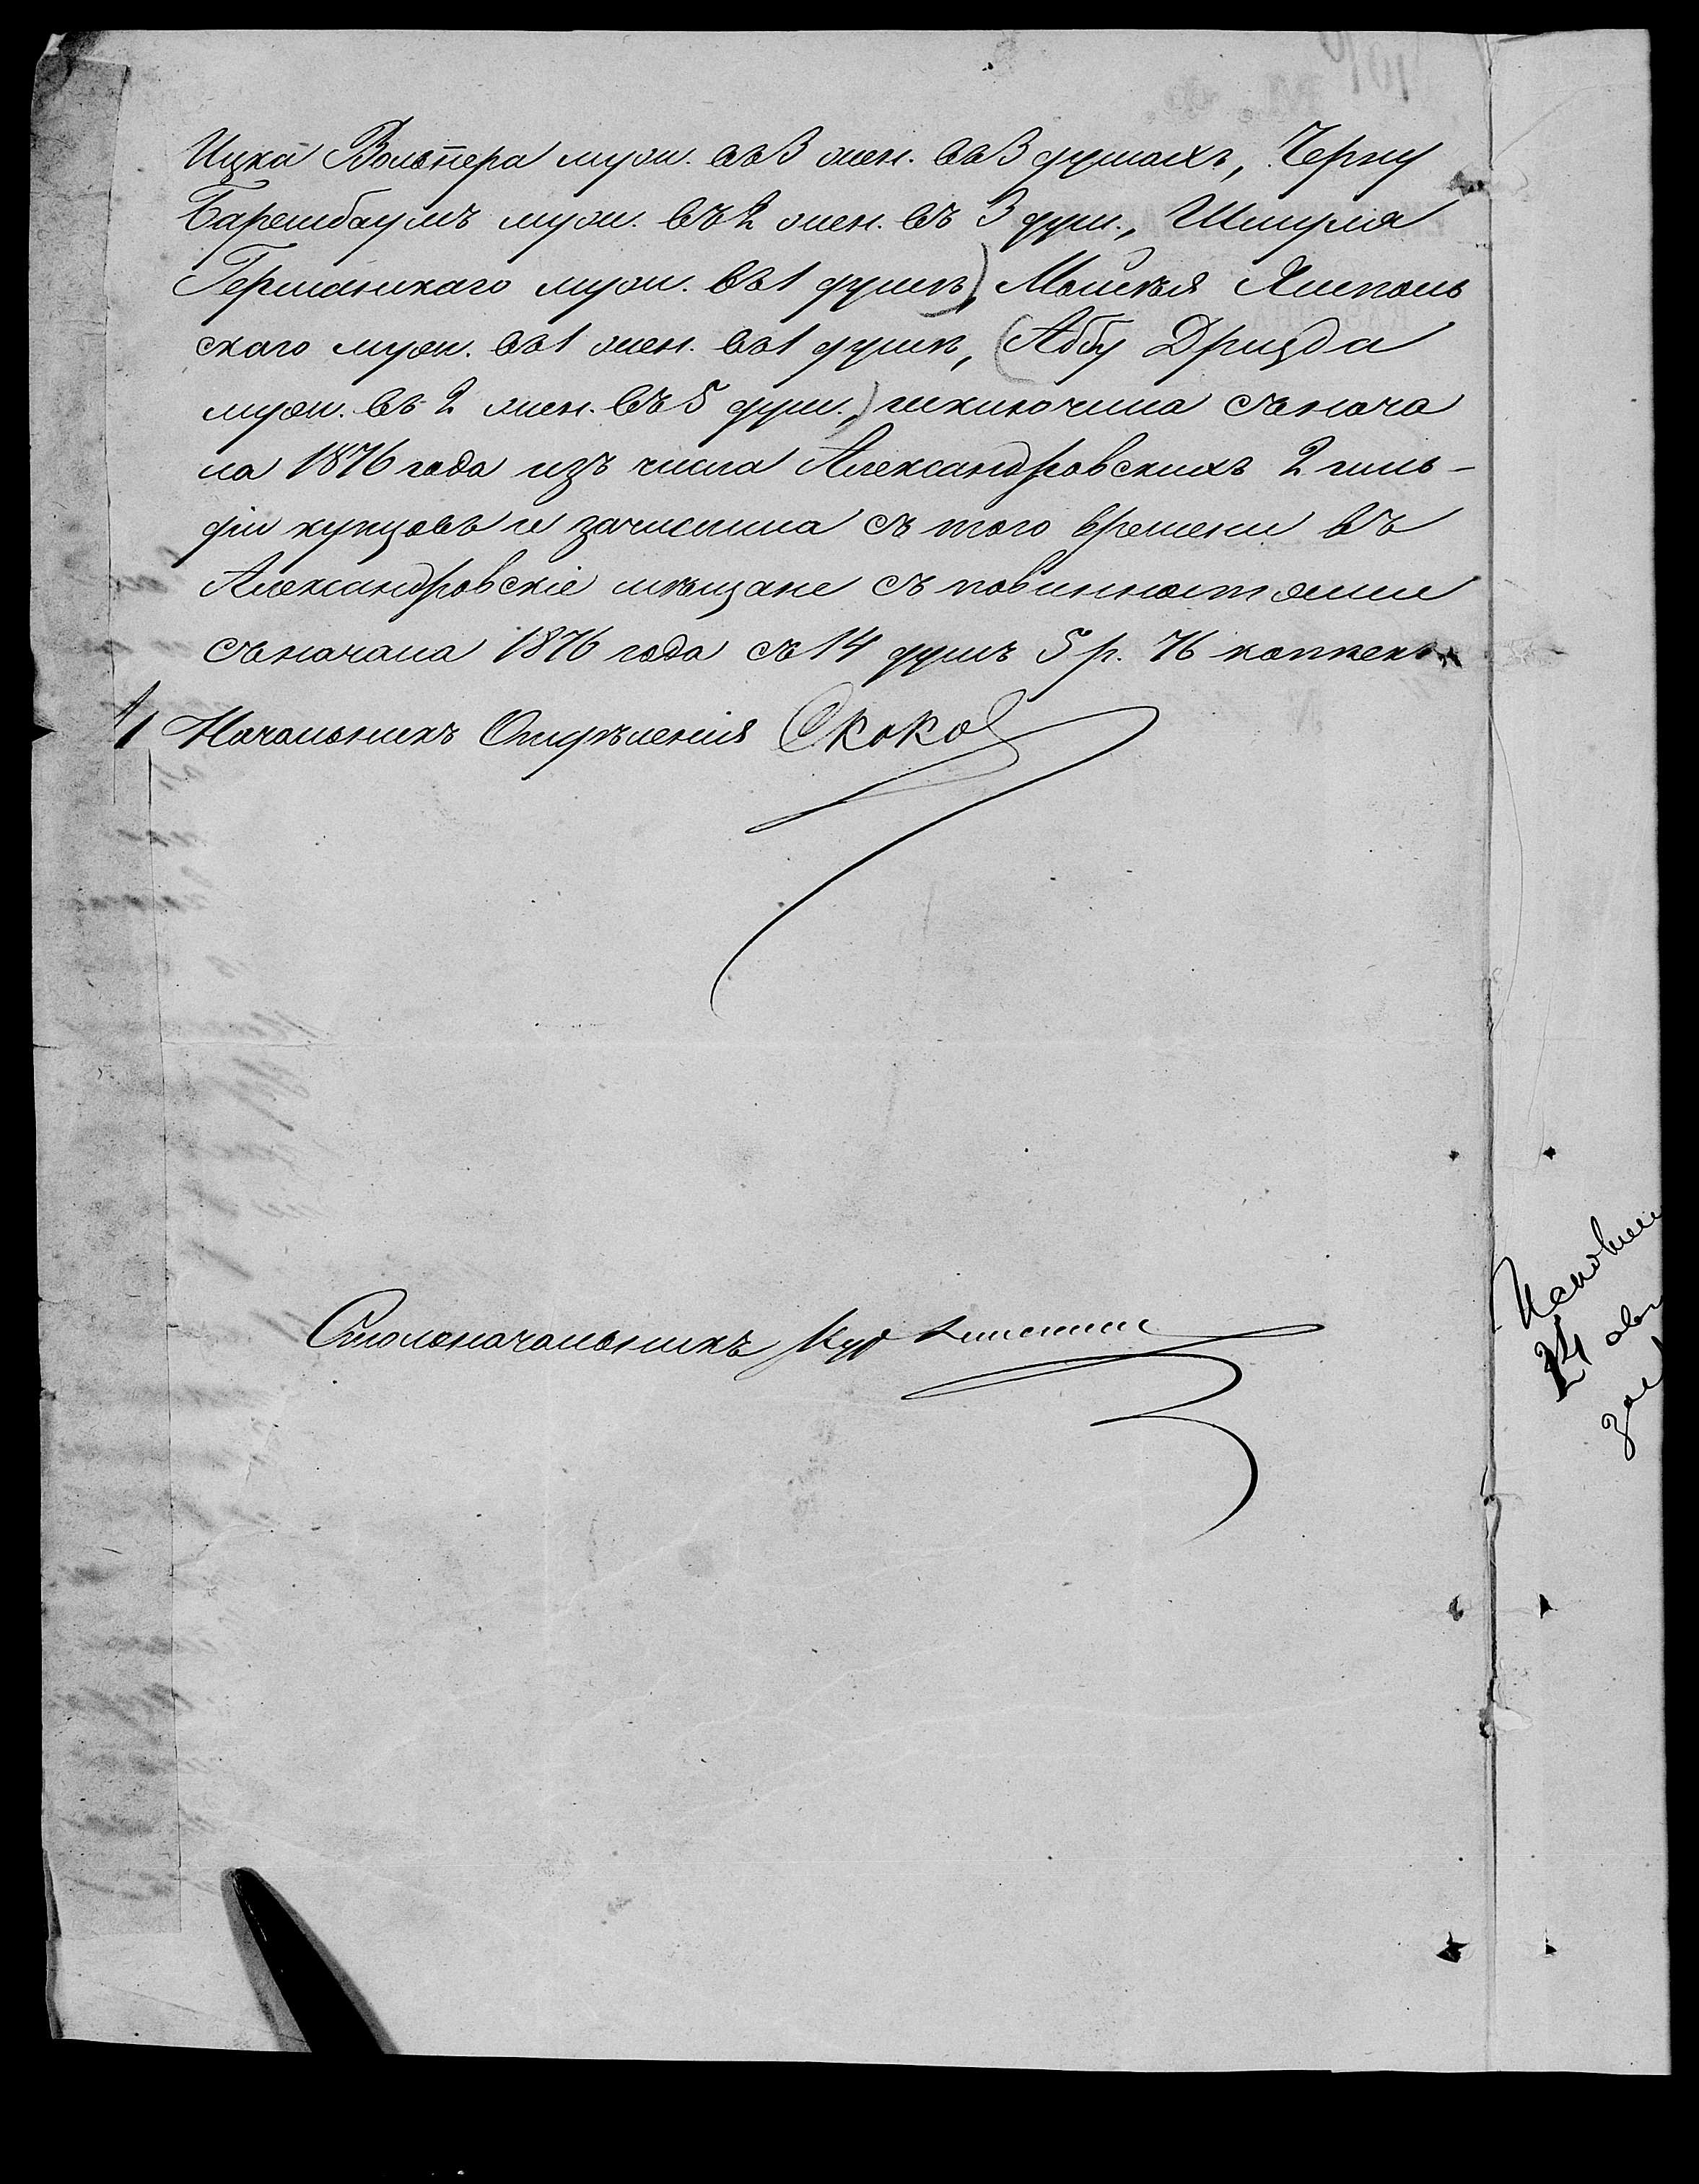 Ицка Вольпера муж. въ 3 жен. въ 3 душахъ, Черну
Баренбаумъ муж. въ 2 жен. въ 3 душ., Шмуля
Германскаго муж. въ 1 душѣ) Мошкѣя Ямполь
скаго муж. въ 1 жен. въ 1 душѣ, (Аббу Дризда
муж. въ 2 жен. въ 5 душ.,) исключила съ нача
ла 1876 года изъ числа Александровскихъ 2 гиль-
діи купцовъ и зачислила съ того времени въ
Александровскіе мѣщане съ повинностями
съ начала 1876 года съ 14 душъ 5 р. 76 копѣекъ
Начальникъ Отдѣленія Скоко
Столоначальникъ
24